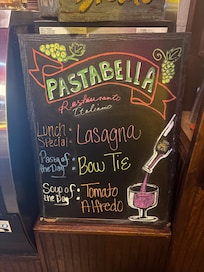 PASTABELLA
Restaurante
Italiano
Lunch Special: Lasagna
Pasty of the Day: Bow TiE
Soup of the Day: Tomato Alfredo